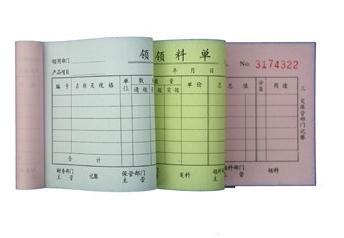 领 领 料 单 No. 3174322
领用部门
产品项目 年 月 日
编 号 名 称 及 规 格 单位 数 数 量 单 价 总 总 值 分页 用 途
请 领 实 请 领 实
合 计
三 交保管部门记账
财务部门主 管 记账 保管部门主 管 发料 领料